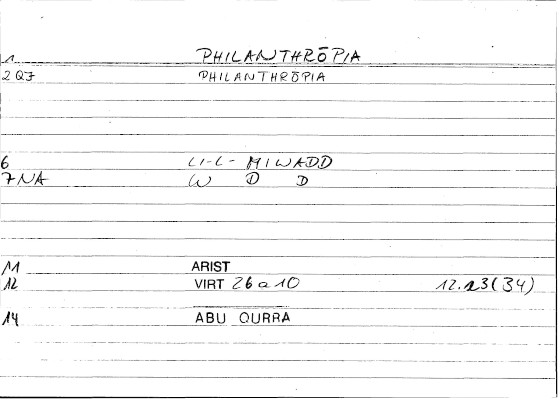 1 PHILANTHRŌPIA
2 QJ PHILANTHRŌPIA
6 LI-L-MIWADD
7 NA W D D
11 ARIST
12 VIRT 26 a 10 12.23(34)
14 ABU QURRA